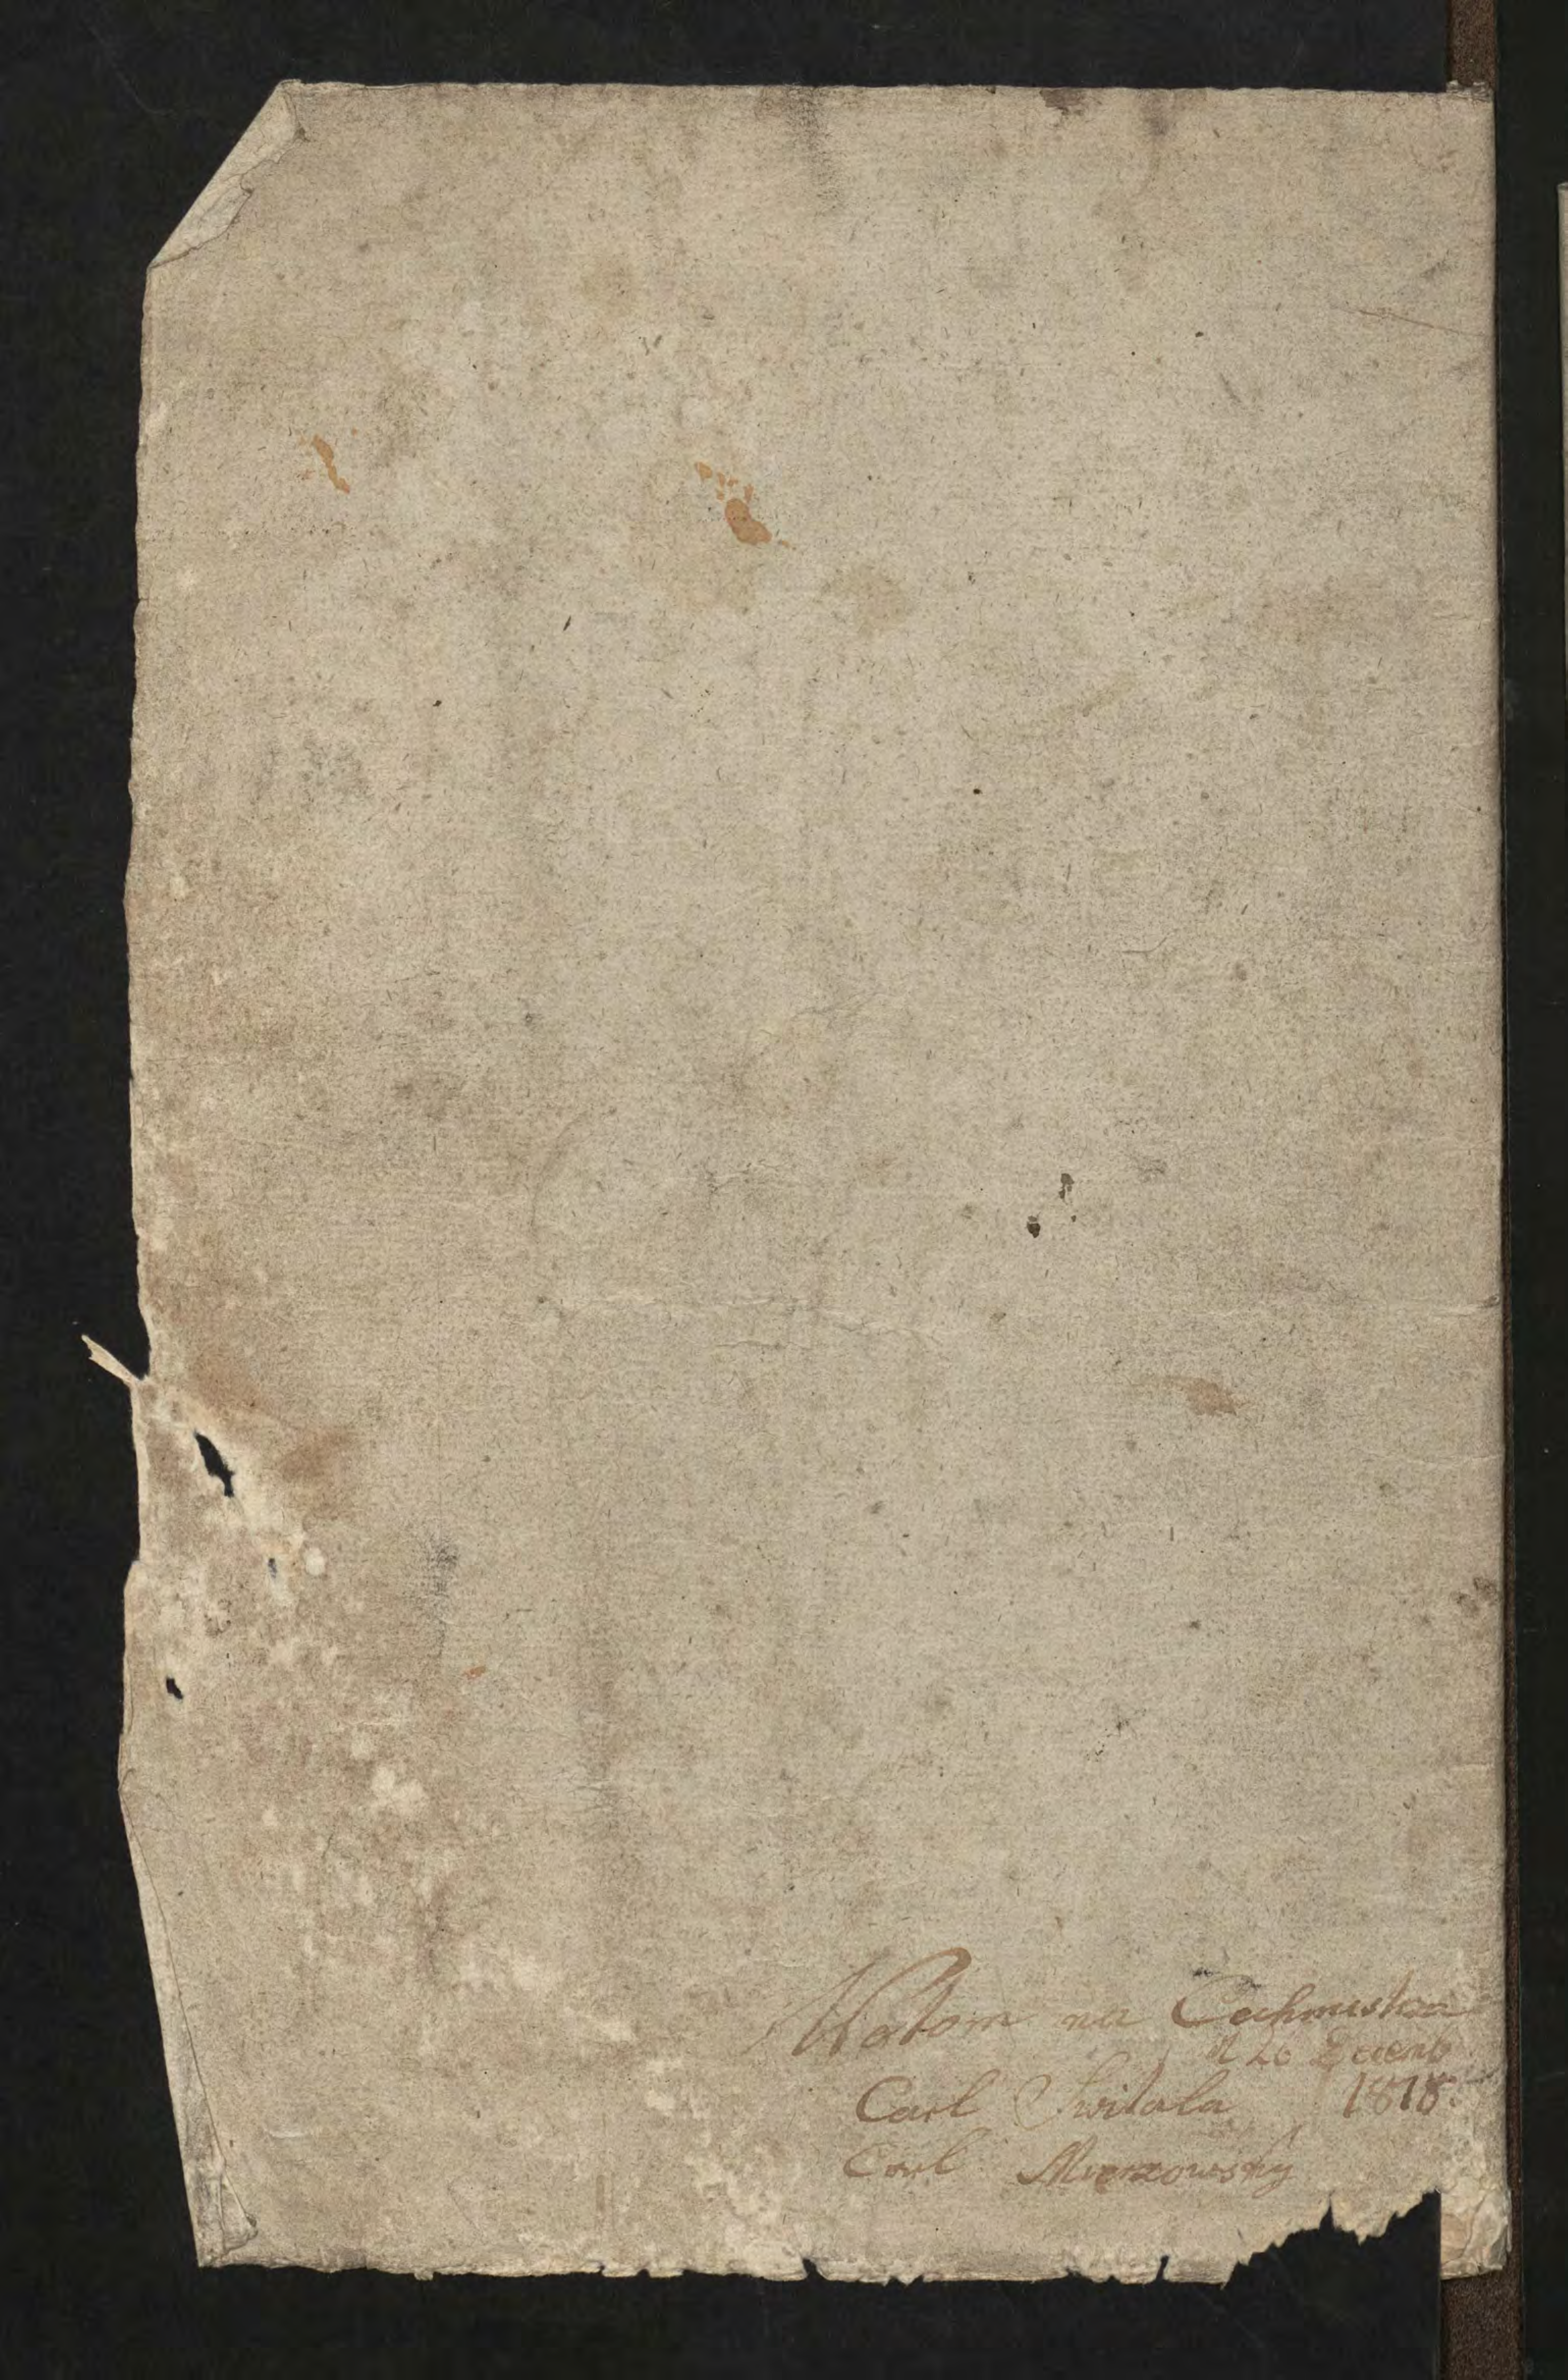 Wotom na Cechmistza
d 26 Decemb
Carl Switala 1818.
Carl Mierzowsky